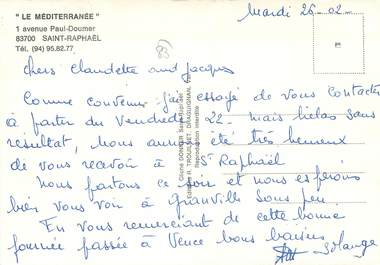 " LE MÉDITERRANÉE "
1 avenue Paul-Doumer
83700 SAINT-RAPHAËL
Tél. (94) 95.82.77
Mardi 26-02-
83
Chers Claudette and Jacques
Comme convenu j'ai essayé de vous contacter
à partir du Vendredi 22- mais hélas sans
résultat, Nous aurions été très heureux
de vous recevoir à St Raphaël
Nous partons ce soir et nous espérons
bien vous voir à Granville sous peu
En vous remerciant de cette bonne
journée passée à Vence bons baisers
Solange
Reproduction interdite